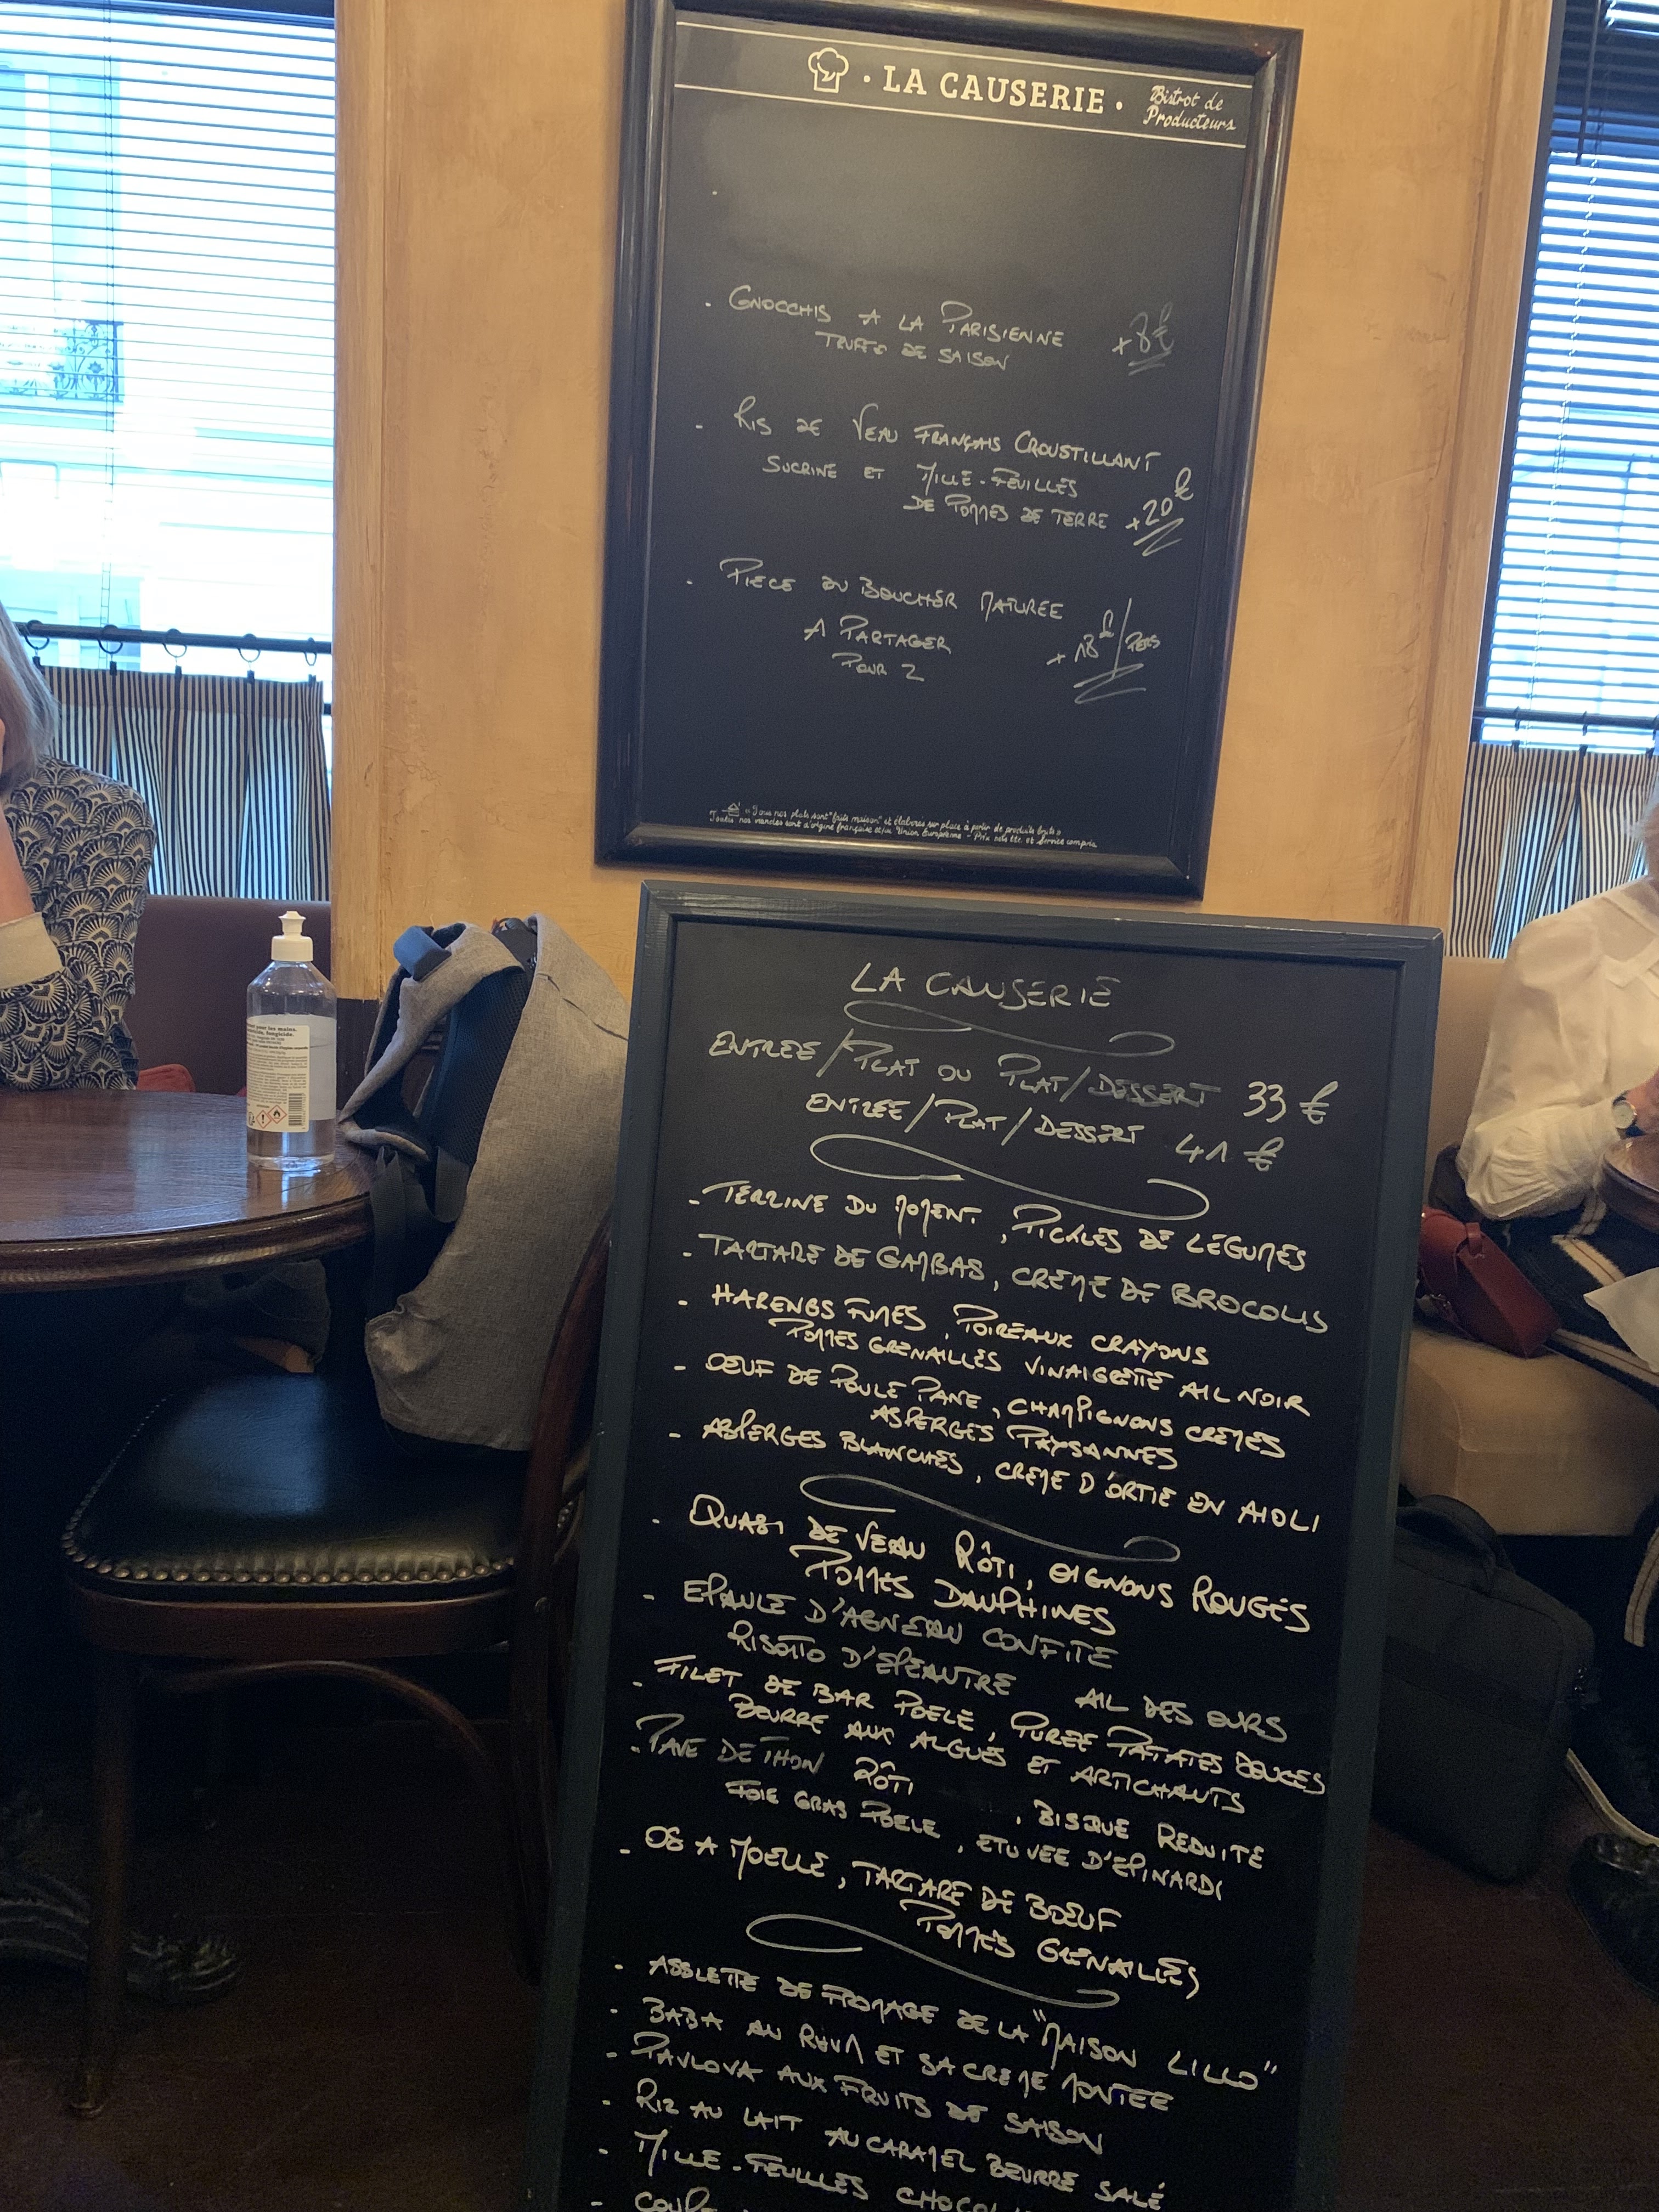 · LA CAUSERIE ·
Bistrot de
Producteurs
· GNOCCHIS A LA PARISIENNE +8€
TRUFFE DE SAISON
· RIS DE VEAU FRANÇAIS CROUSTILLANT
SUCRINE ET MILLE-FEUILLES
DE POMMES DE TERRE +20€
· PIECE DU BOUCHER MATUREE
A PARTAGER + 18€/PERS
POUR 2
«Tous nos plats sont "faits maison" et élaborés sur place à partir de produits bruts»
Toutes nos viandes sont d'origine française et/ou Union Européenne - Prix nets ttc. et Service compris
LA CAUSERIE
ENTREE/PLAT OU PLAT/DESSERT 33 €
ENTREE/PLAT/DESSERT 41 €
- TERRINE DU MOMENT, PICKLES DE LÉGUMES
- TARTARE DE GAMBAS, CREME DE BROCOLIS
- HARENGS FUMES, POIREAUX CRAYONS
POMMES GRENAILLES VINAIGRETTE AIL NOIR
- OEUF DE POULE PANE, CHAMPIGNONS CREMES
ASPERGES PAYSANNES
- ASPERGES BLANCHES, CREME D'ORTIE EN AIOLI
- QUASI DE VEAU RÔTI, OIGNONS ROUGES
POMMES DAUPHINES
- EPAULE D'AGNEAU CONFITE
RISOTTO D'EPEAUTRE AIL DES OURS
- FILET DE BAR POELE, PUREE PATATES DOUCES
BEURRE AUX ALGUES ET ARTICHAUTS
- PAVE DE THON RÔTI, BISQUE REDUITE
FOIE GRAS POELE, ETUVEE D'EPINARDS
- OS A MOELLE, TARTARE DE BOEUF
POMMES GRENAILLES
- ASSIETTE DE FROMAGE DE LA "MAISON LILLO"
- BABA AU RHUM ET SA CREME MONTEE
- PAVLOVA AUX FRUITS DE SAISON
- RIZ AU LAIT AU CARAMEL BEURRE SALÉ
- MILLE-FEUILLES